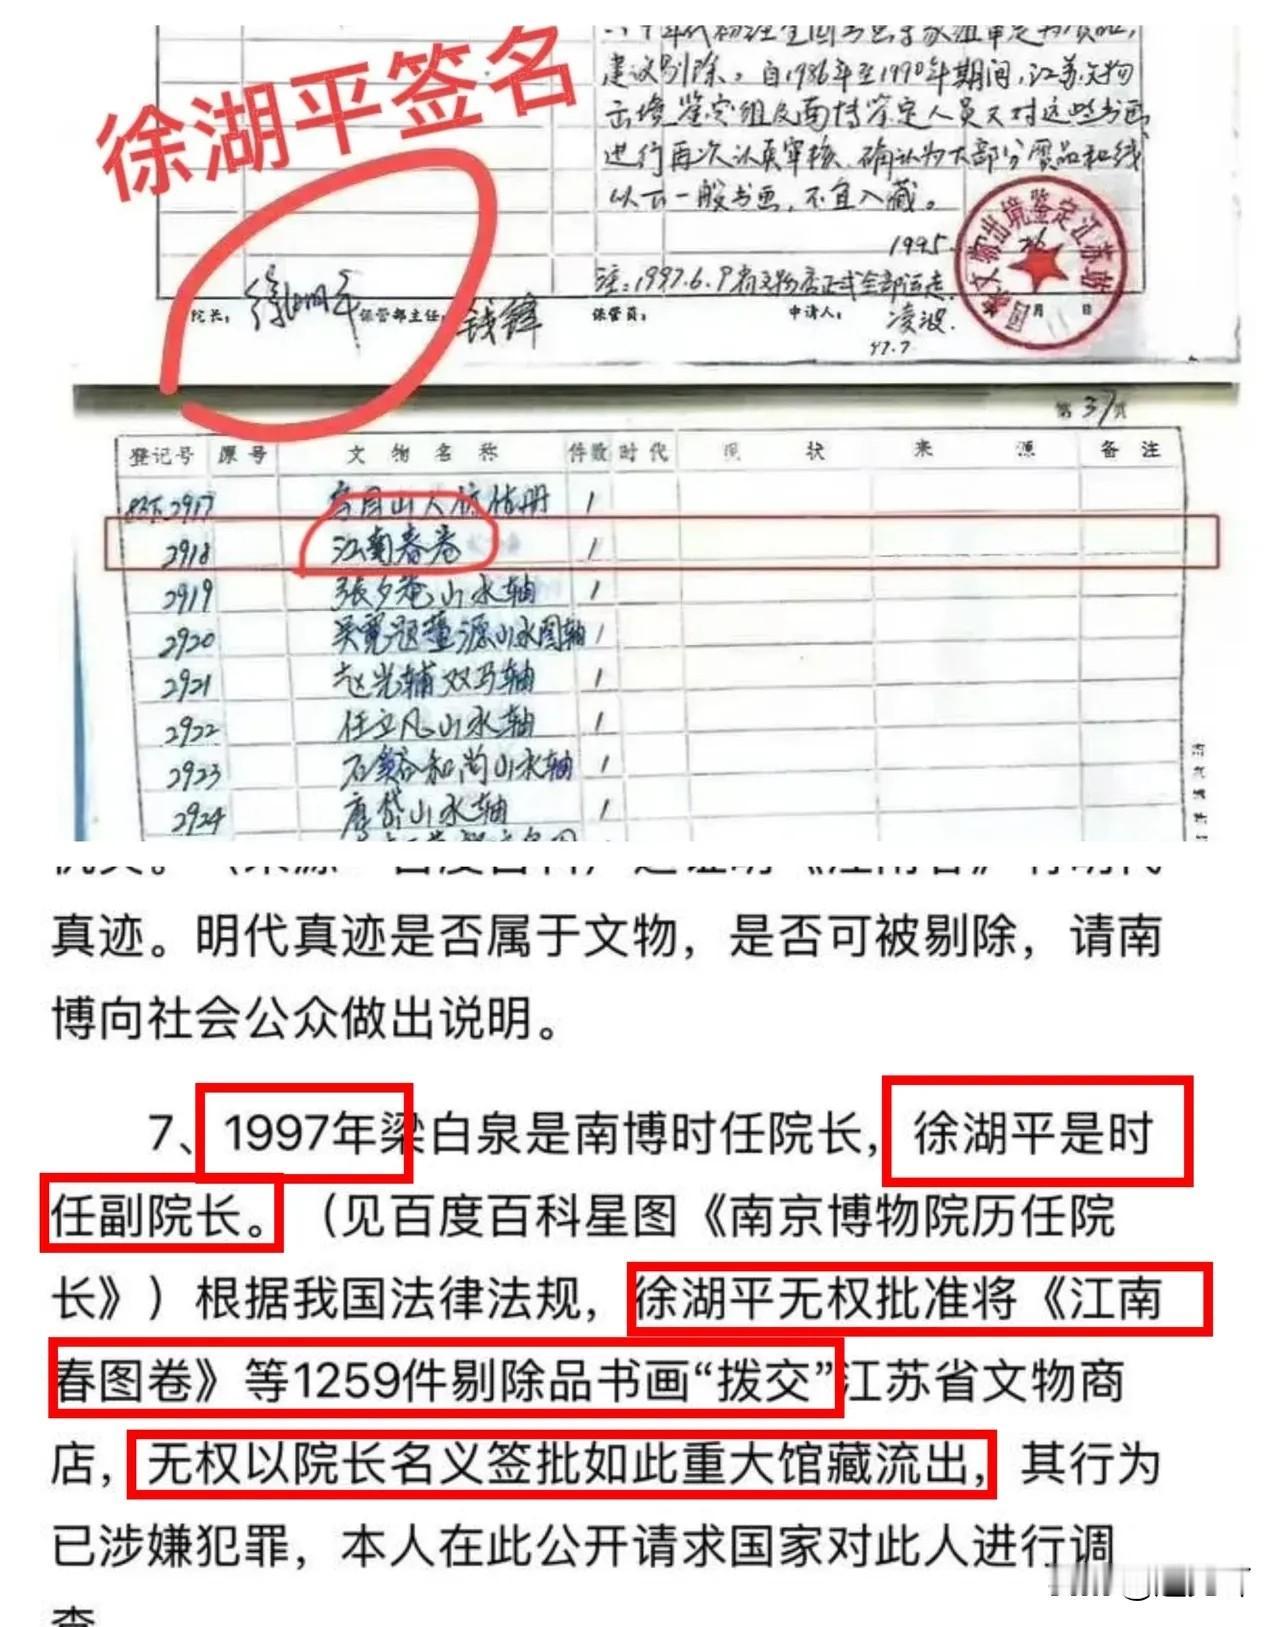 徐湖平签名
建议剔除。自1986年至1990年期间,江苏文物
出境鉴定组及南博鉴定人员又对这些书画
进行再次认真审核,确认为大部分赝品和线
以下一般书画,不宜入藏。
1995.
国家文物出境鉴定江苏站
月 日
注:1997.6.9
院长: 徐湖平 保管部主任: 钱锋 保管员: 申请人: 凌波.
97.7
第37页
登记号 原号 文物名称 件数 时代 现状 来源 备注
2917 1
2918 江南春卷 1
2919 張夕庵山水轴 1
2920 吴宽题董源山水图轴 1
2921 赵光辅双马轴 1
2922 任立凡山水轴 1
2923 石溪和尚山水轴 1
2924 唐岱山水轴 1
真迹。明代真迹是否属于文物,是否可被剔除,请南
博向社会公众做出说明。
7、1997年梁白泉是南博时任院长,徐湖平是时
任副院长。(见百度百科星图《南京博物院历任院
长》)根据我国法律法规,徐湖平无权批准将《江南
春图卷》等1259件剔除品书画“拨交”江苏省文物商
店,无权以院长名义签批如此重大馆藏流出,其行为
已涉嫌犯罪,本人在此公开请求国家对此人进行调
查